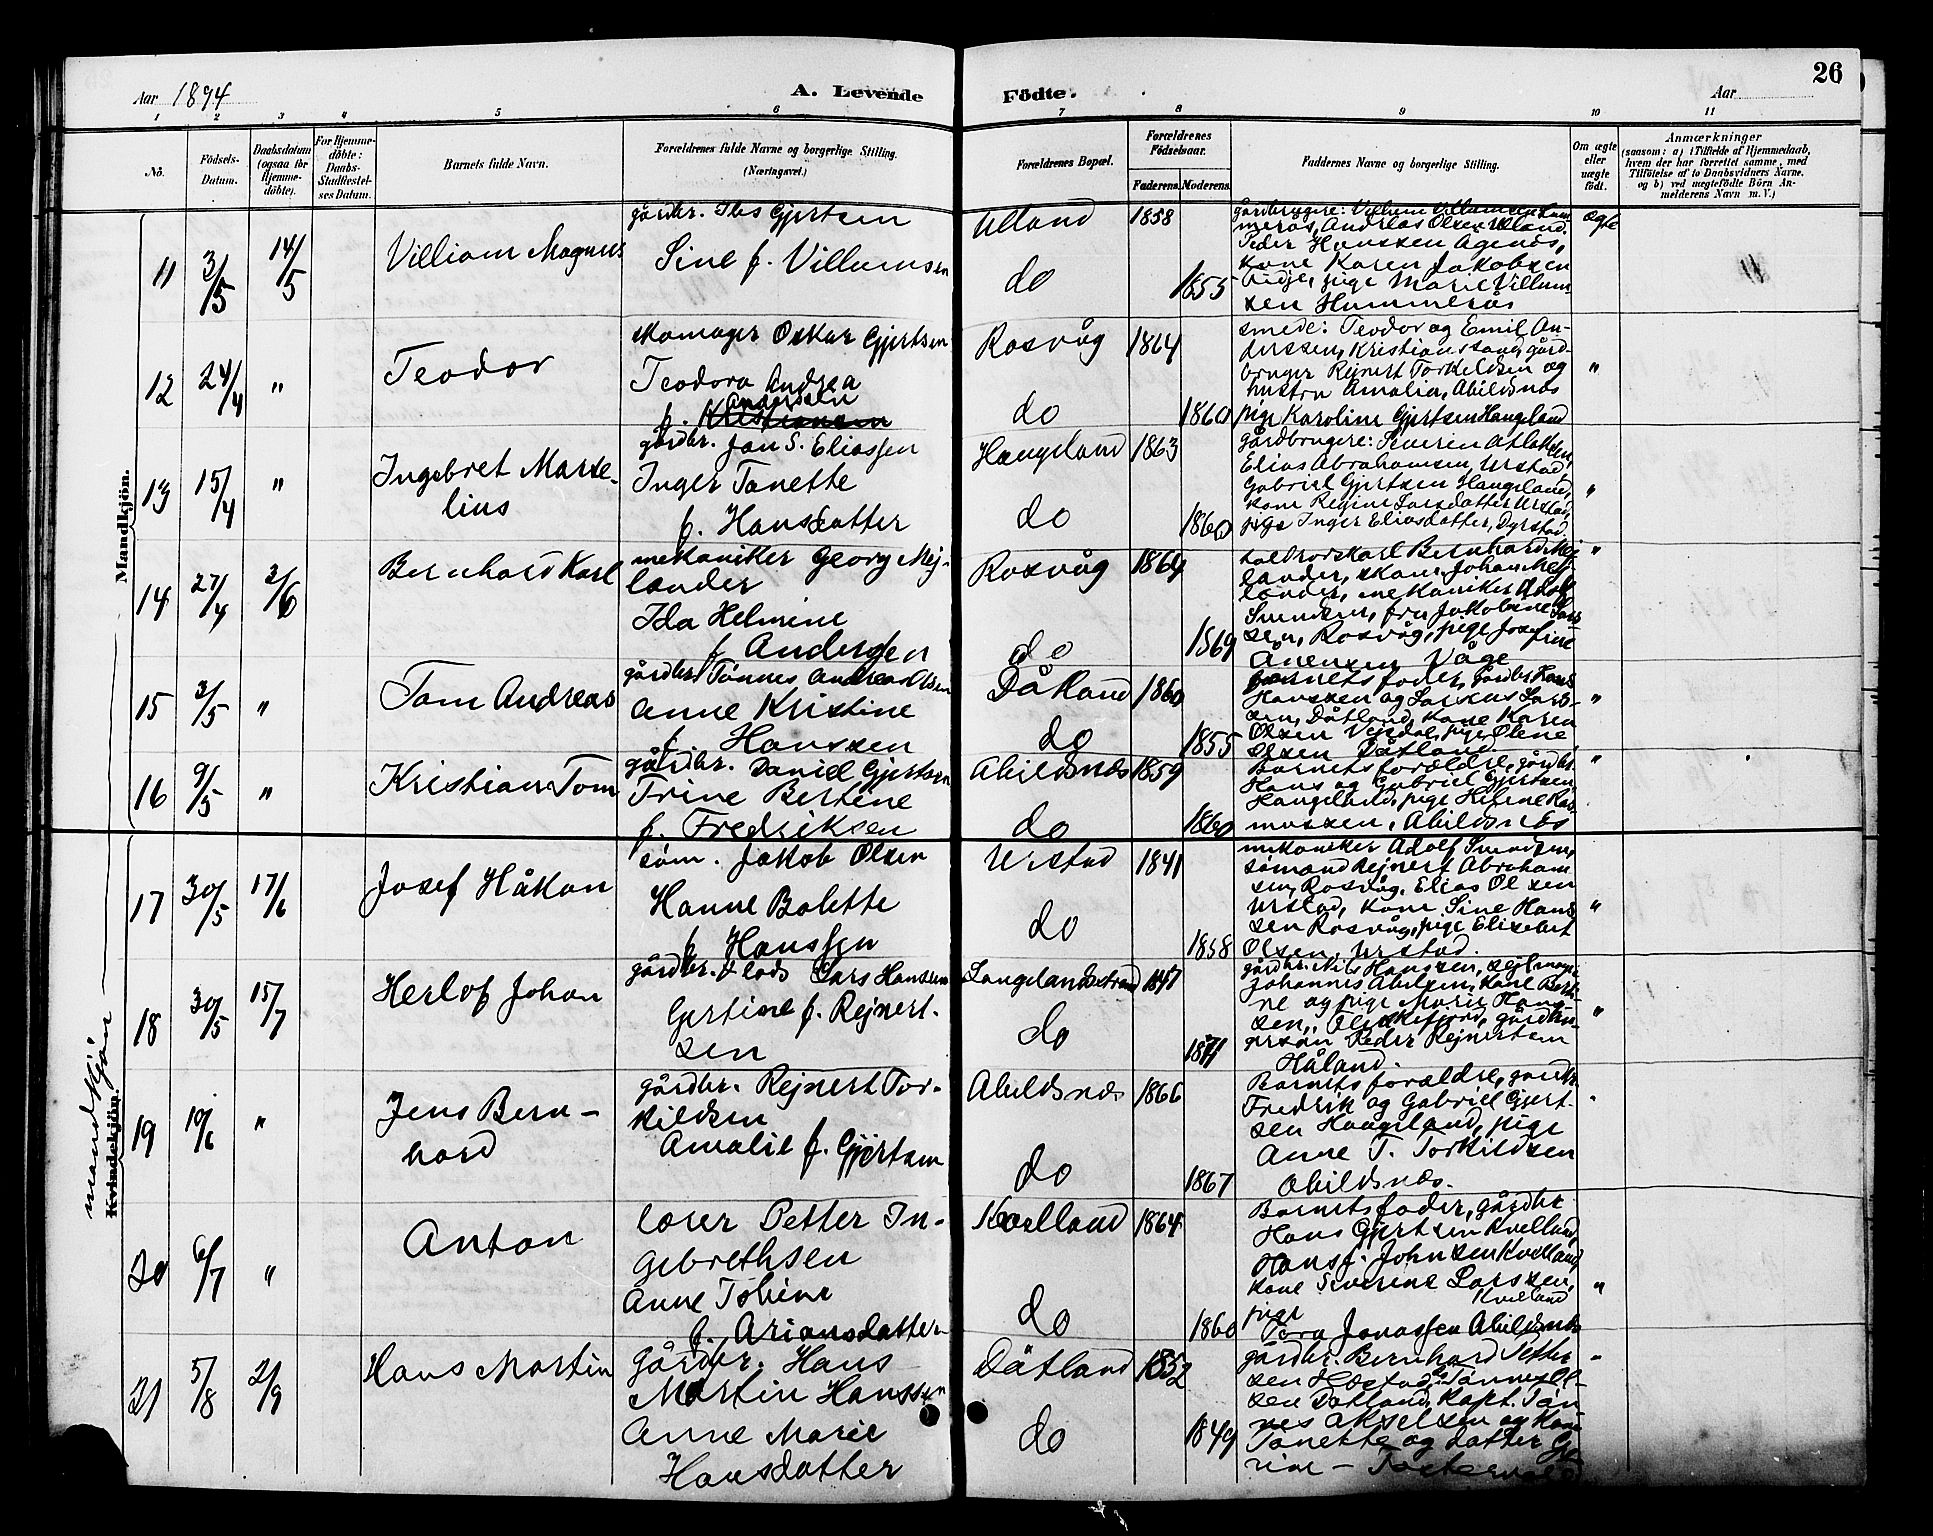 Aar 1894
A. Levende
Födte.
Aar
26
1 2 3 4 5 6 7 8 9 10 11
No.
Födsels-Datum.
Daabsdatum (ogsaa for Hjemme-döbte).
For Hjemme-döbte: Daabs-Stadfæstel-ses Datum.
Barnets fulde Navn.
Forældrenes fulde Navne og borgerlige Stilling. (Næringsvei.)
Forældrenes Bopæl.
Forældrenes Födselsaar.
Faderens. Moderens.
Faddernes Navne og borgerlige Stilling.
Om ægte eller uægte födt.
Anmærkninger
(saasom: a) i Tilfælde af Hjemmedaab,
hvem der har forrettet samme, med
Tilföielse af to Daabsvidners Navne,
og b) ved uægtefödte Börn An-
melderens Navn m. V.)
Mandkjön.
11 3/5 14/5 Villiam Magnus
gårdbr. Gjertsen
Sine f. Villumsen
Ulland 1858
do 1855
gårdbrugere: Villum Villumsen Hum-
merås, Andreas Olsen Ulland
Peder Hanssen Agenæs,
kone Karen Jakobsen
pige Marie Villum-
sen Hummerås
ægte
12 24/4 " Teodor
skomager Oskar Gjertsen
Teodora Andrea
f. Kristiansen Andersen
Rosvåg 1864
do 1860
smede: Teodor og Emil An-
derssen, Kristianssand, gård-
bruger Rejnert Torkeldsen og
hustru Amalia, Abildsnæs
pige Karoline Gjertsen Haugeland
"
13 15/4 " Ingebret Marse-
lius
gårdbr. Jan S. Eliassen
Inger Tanette
f. Hansdatter
Haugeland 1863
do 1860
gårdbrugere: Severin Atlaksen,
Elias Abrahamsen, Urstad,
Gabriel Gjertsen Haugeland,
kone Regine Larsdatter Urstad,
pige Inger Eliasdatter, Dyrstad.
"
14 27/4 3/6 Bernhard Karl
mekaniker Georg Mej-
lænder
Ida Helmine
f. Andersen
Rosvåg 1864
do 1869
Bernhard Mej-
lænder, Johan Mej-
lænder, mekaniker Adolf
Svendsen, fru Jakobine Lars-
sen, Rosvåg, pige Josefine
Ånensen Våge
"
15 3/5 " Tom Andreas
gårdbr. Tønnes Andreas Olsen
Anne Kristine
f. Hanssen
Dåtland 1860
do 1855
Barnets fader, gårdbr. Hans
Hanssen og Lars-
sen, Dåtland, kone Karen
Olsen pige Olene
Olsen Dåtland
"
16 9/5 " Kristian Tom
gårdbr. Daniel Gjertsen
Trine Bertine
f. Fredriksen
Abildsnæs 1859
do 1860
Barnets forældre, gårdbr.
Hans og Gabriel Gjertsen,
Haugeland, pige Helene Ras-
mussen, Abildsnæs
"
mandkjön
Kvindekjön
17 30/5 17/6 Josef Håkon
søm. Jakob Olsen
Hanne Bolette
f. Hanssen
Urstad 1841
do 1858
mekaniker Adolf Svendsen,
sømand Rejnert Abraham-
sen, Rosvåg, Elias Olsen
Urstad, kone Sine Hans-
sen Rosvåg, pige Elisabet
Olsen, Urstad.
"
18 30/5 15/7 Herlof Johan
gårdbr. & lods Lars Hanssen
Gertine f. Rejnert-
sen
Langelandsstrand 1847
do
gårdbr. Nils Hanssen, sejlmager
Johannes Abelsen, kone Berti-
ne og pige Marie Hans-
sen, Flekkefjord, gårdbru-
gersøn Peder Rejnertsen
Håland.
"
19 10/6 " Jens Bern-
hard
gårdbr. Rejnert Tor-
kildsen
Amalie f. Gjertsen
Abildsnæs 1866
do 1867
Barnets forældre, gårdbr.
Fredrik og Gabriel Gjert-
sen Haugeland, pige
Anne T. Torkildsen
Abildsnæs.
"
20 6/7 " Anton
lærer Petter In-
gebrethsen
Anne Toline
f. Ariansdatter
Kvelland 1864
do 1860
Barnets fader, gårdbr.
Hans Gjertsen Kvelland,
Hans J. Johnsen Kvelland
kone Severine Larssen,
Kvelland
pige
Tora Jonassen Abildsnæs
"
21 5/8 2/9 Hans Martin
gårdbr. Hans
Martin Hanssen
Anne Marie
Hansdatter
Dåtland 1852
do 1849
gårdbr. Bernhard Petter-
sen
sen Dåtland, kapt. Tøn-
nes Akselsen og kone
Tanette og datter
rine –
"